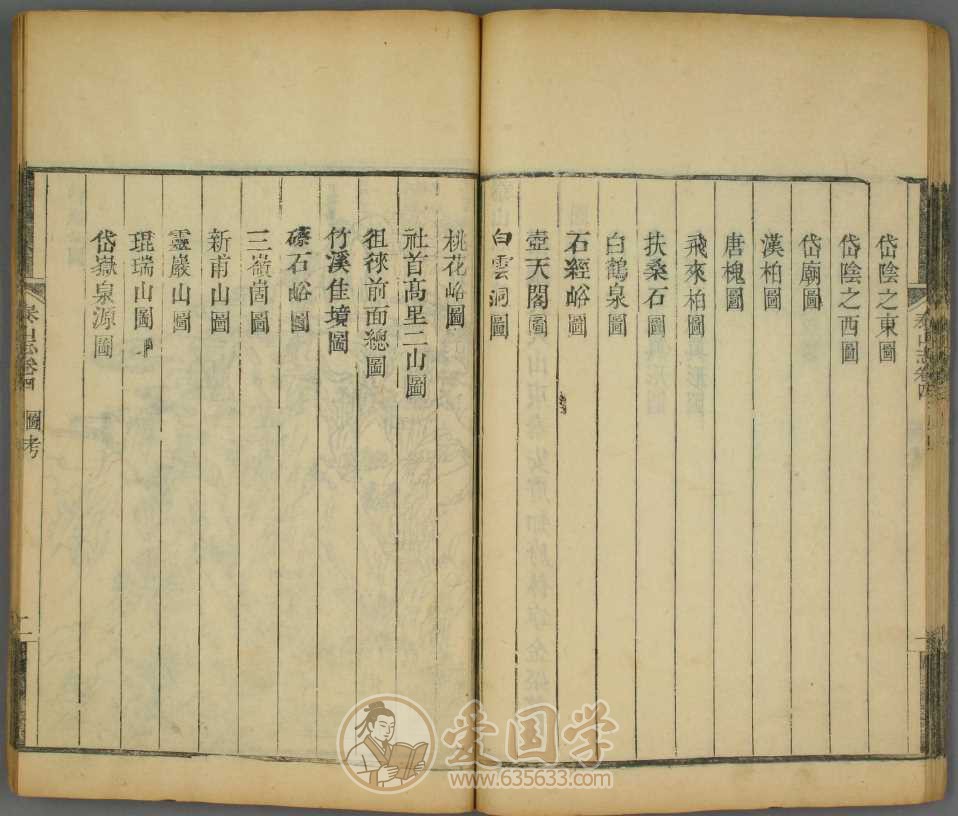 岱陰之東圖
岱陰之西圖
岱廟圖
漢柏圖
唐槐圖
飛來柏圖
扶桑石圖
白鶴泉圖
石經峪圖
壺天閣圖
白雲洞圖
桃花峪圖
社首高里二山圖
徂徠前面總圖
竹溪佳境圖
磉石峪圖
三嶺崮圖
新甫山圖
靈巖山圖
琨瑞山圖
岱嶽泉源圖
泰山志卷四 圖考
二
泰山志卷四
爱国学
www.635633.com